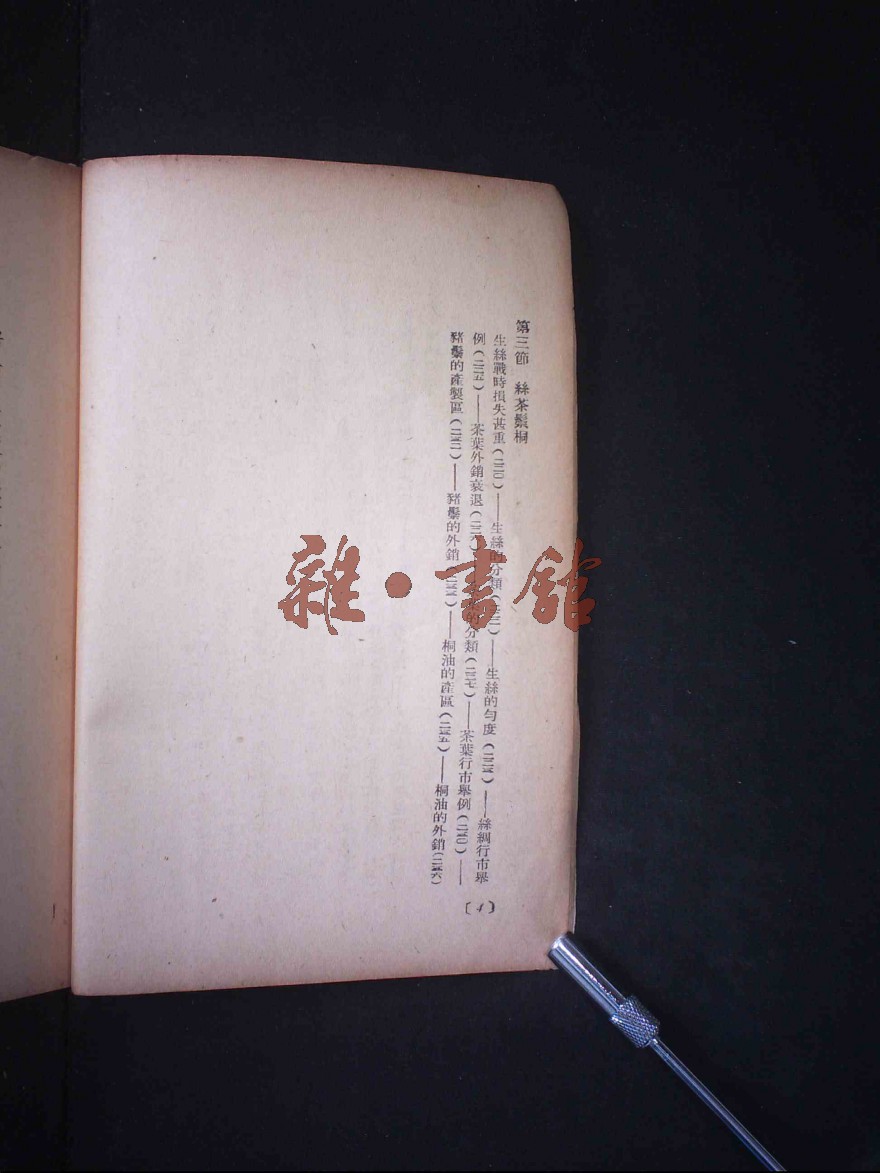 第三節　絲茶鬃桐
生絲戰時損失甚重(二三〇)——生絲的分類(二三一)——生絲的勻度(二三四)——絲綢行市舉
例(二三五)——茶葉外銷衰退(二三六)的分類(二三七)——茶葉行市舉例(二四〇)——
豬鬃的產製區(二四二)——豬鬃的外銷(二四四)——桐油的產區(二四五)——桐油的外銷(二四六)
雜·書館